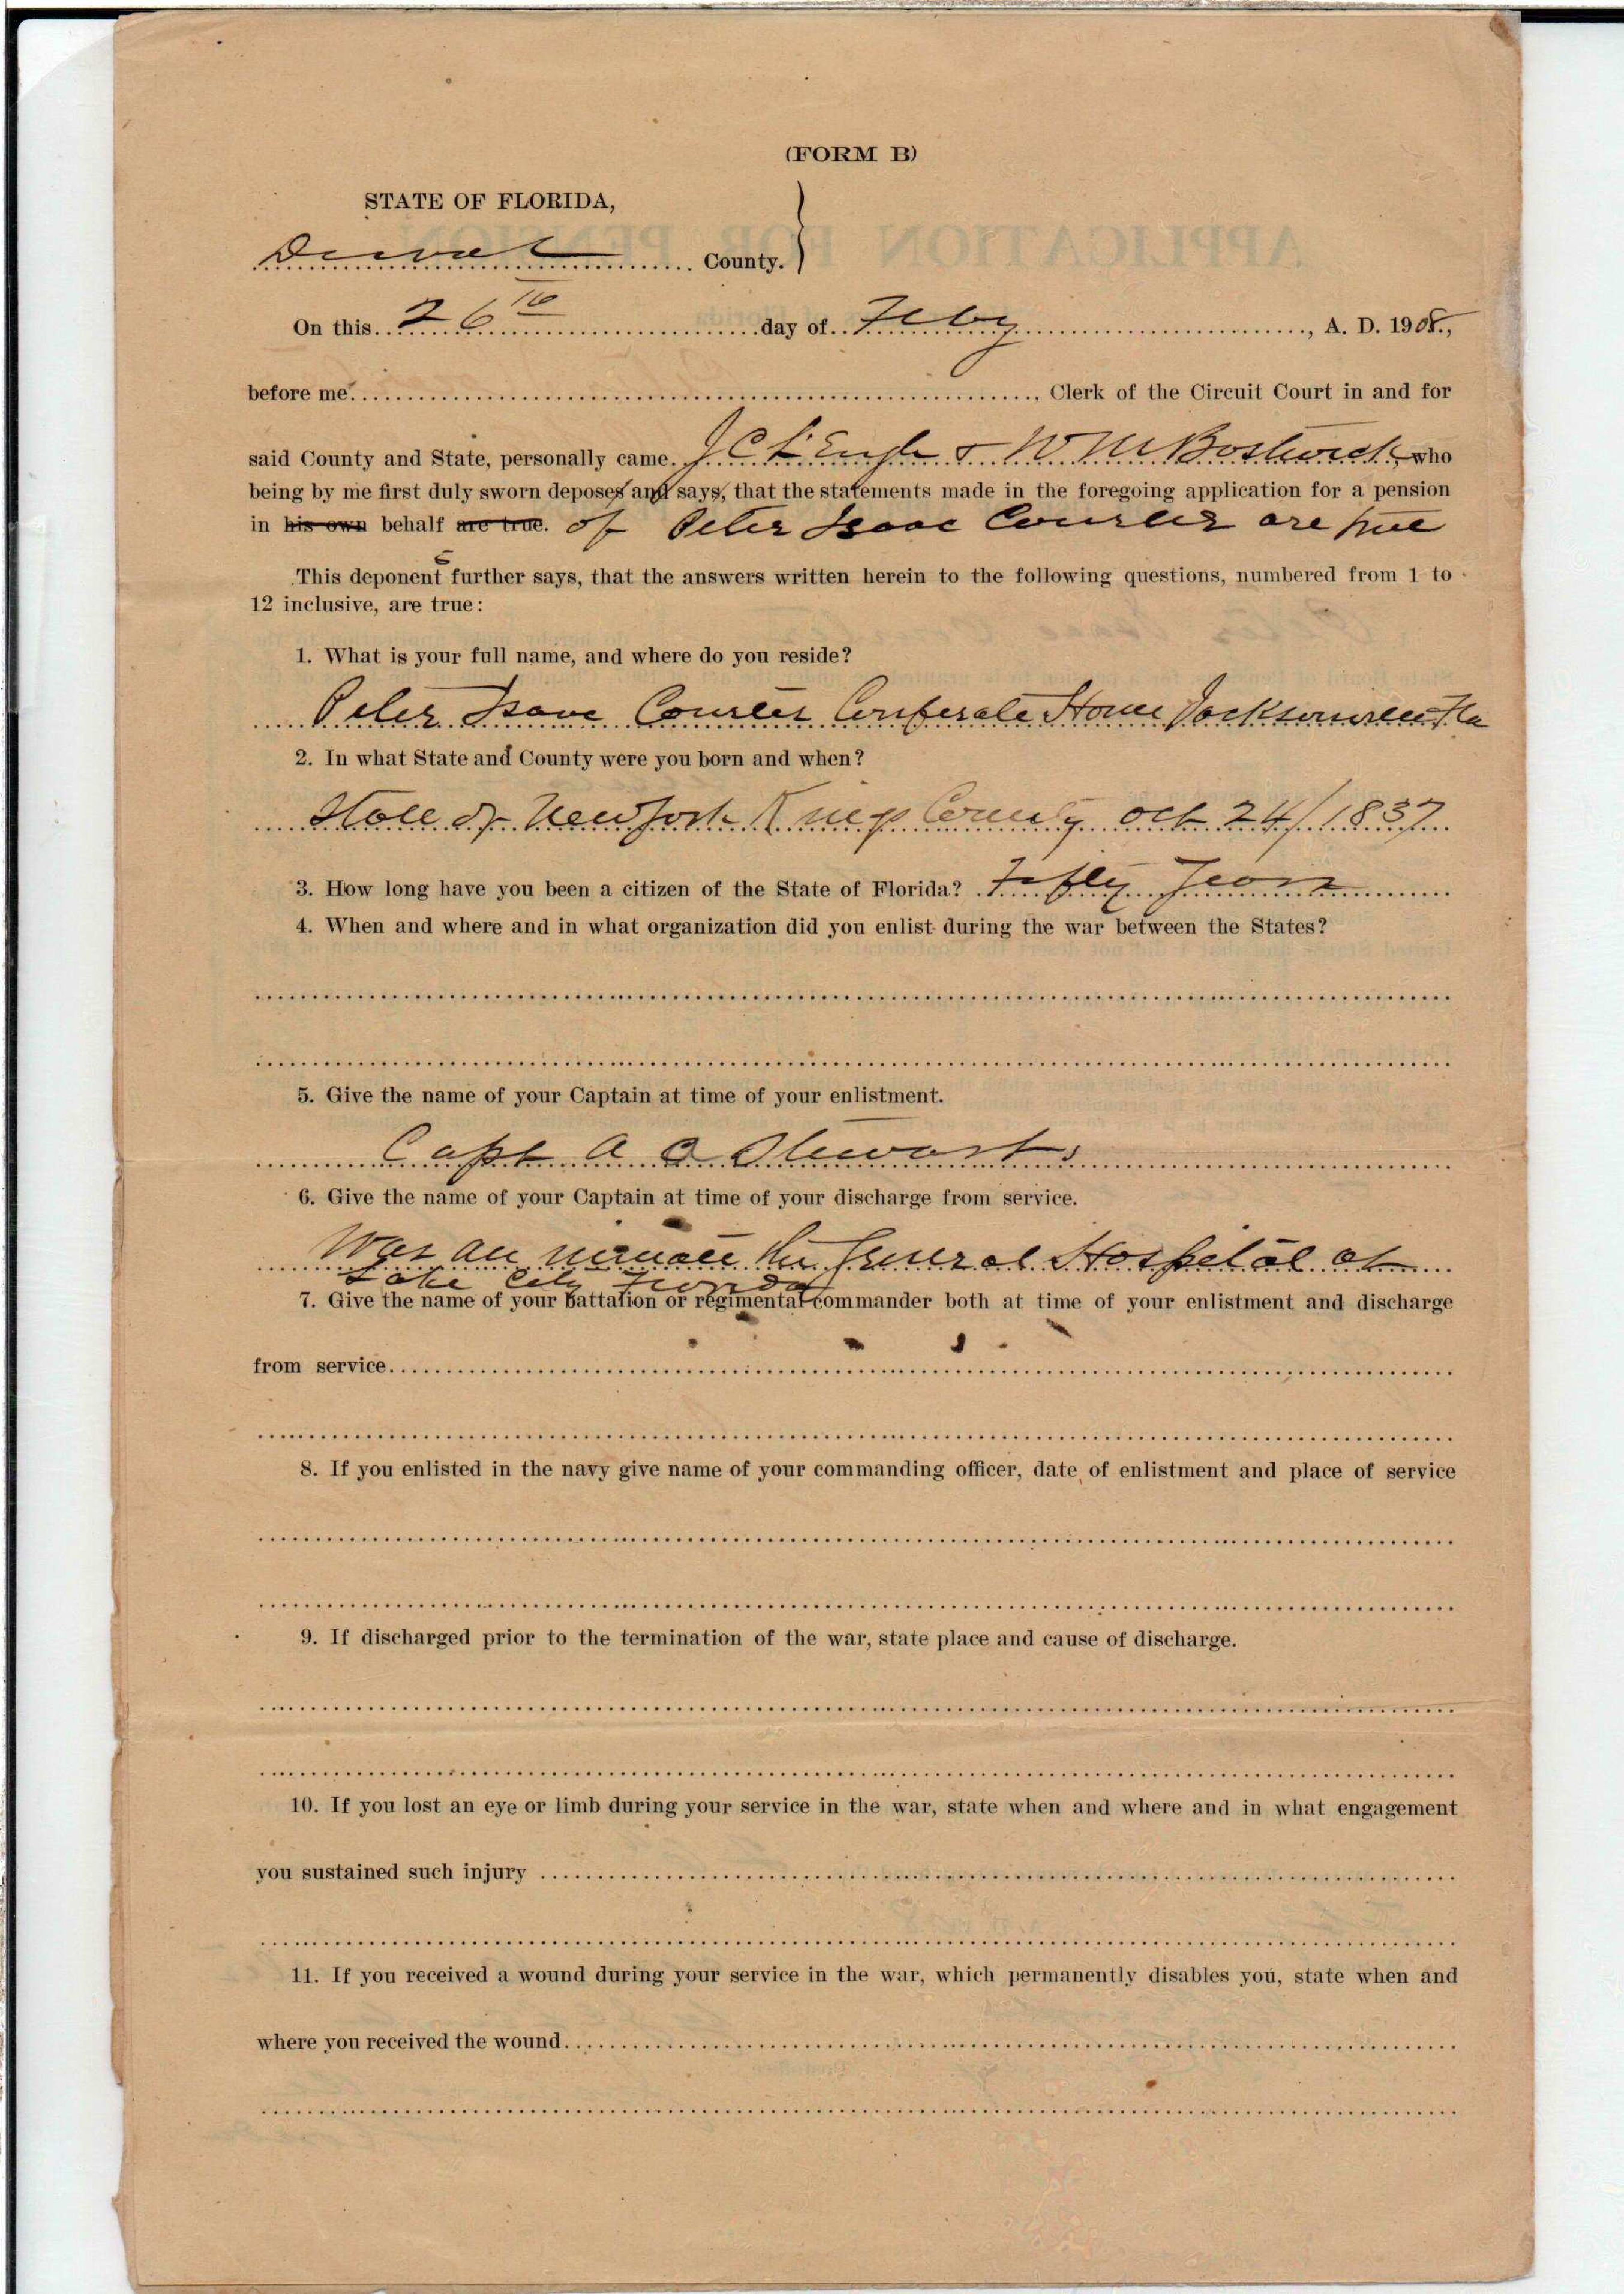 (FORM B)
STATE OF FLORIDA,
Duval County.
On this 26th day of Feby, A. D. 1908,
before me, Clerk of the Circuit Court in and for
said County and State, personally came J. C. L'Engle & W. M. Bostwick who
being by me first duly sworn deposes and says, that the statements made in the foregoing application for a pension
in his own behalf are true. of Peter Isaac Courter are true
This deponent further says, that the answers written herein to the following questions, numbered from 1 to
12 inclusive, are true:
1. What is your full name, and where do you reside?
Peter Isaac Courter Conferate Home Jacksonville Fla
2. In what State and County were you born and when?
State of New York Kings County Oct 24/1837
3. How long have you been a citizen of the State of Florida? Fifty Years
4. When and where and in what organization did you enlist during the war between the States?
5. Give the name of your Captain at time of your enlistment.
Capt A. Stewart
6. Give the name of your Captain at time of your discharge from service.
Was an the General Hospital at
Lake City Florida
7. Give the name of your Battalion or regimental commander both at time of your enlistment and discharge
from service
8. If you enlisted in the navy give name of your commanding officer, date of enlistment and place of service
9. If discharged prior to the termination of the war, state place and cause of discharge.
10. If you lost an eye or limb during your service in the war, state when and where and in what engagement
you sustained such injury
11. If you received a wound during your service in the war, which permanently disables you, state when and
where you received the wound.